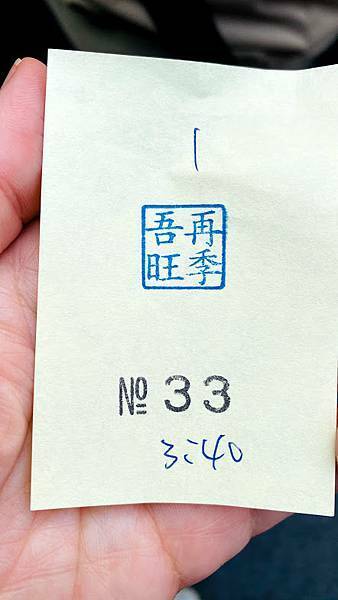 1
再季
吾旺
№ 33
3:40